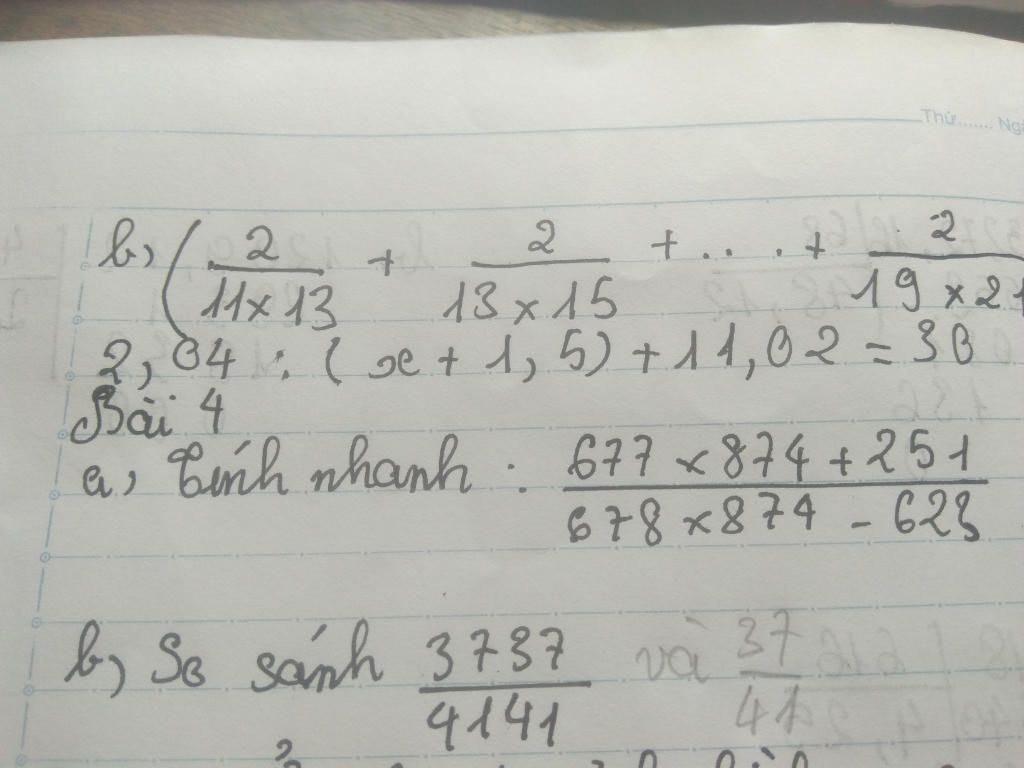 Thứ....... Ng
b, ( 2/11×13 + 2/13×15 + .... + 2/19×21
2,04 : ( x + 1,5) + 11,02 = 30
Bài 4
a, Tính nhanh : 677 × 874 + 251 / 678 × 874 - 623
b, So sánh 3737/4141 và 37/41